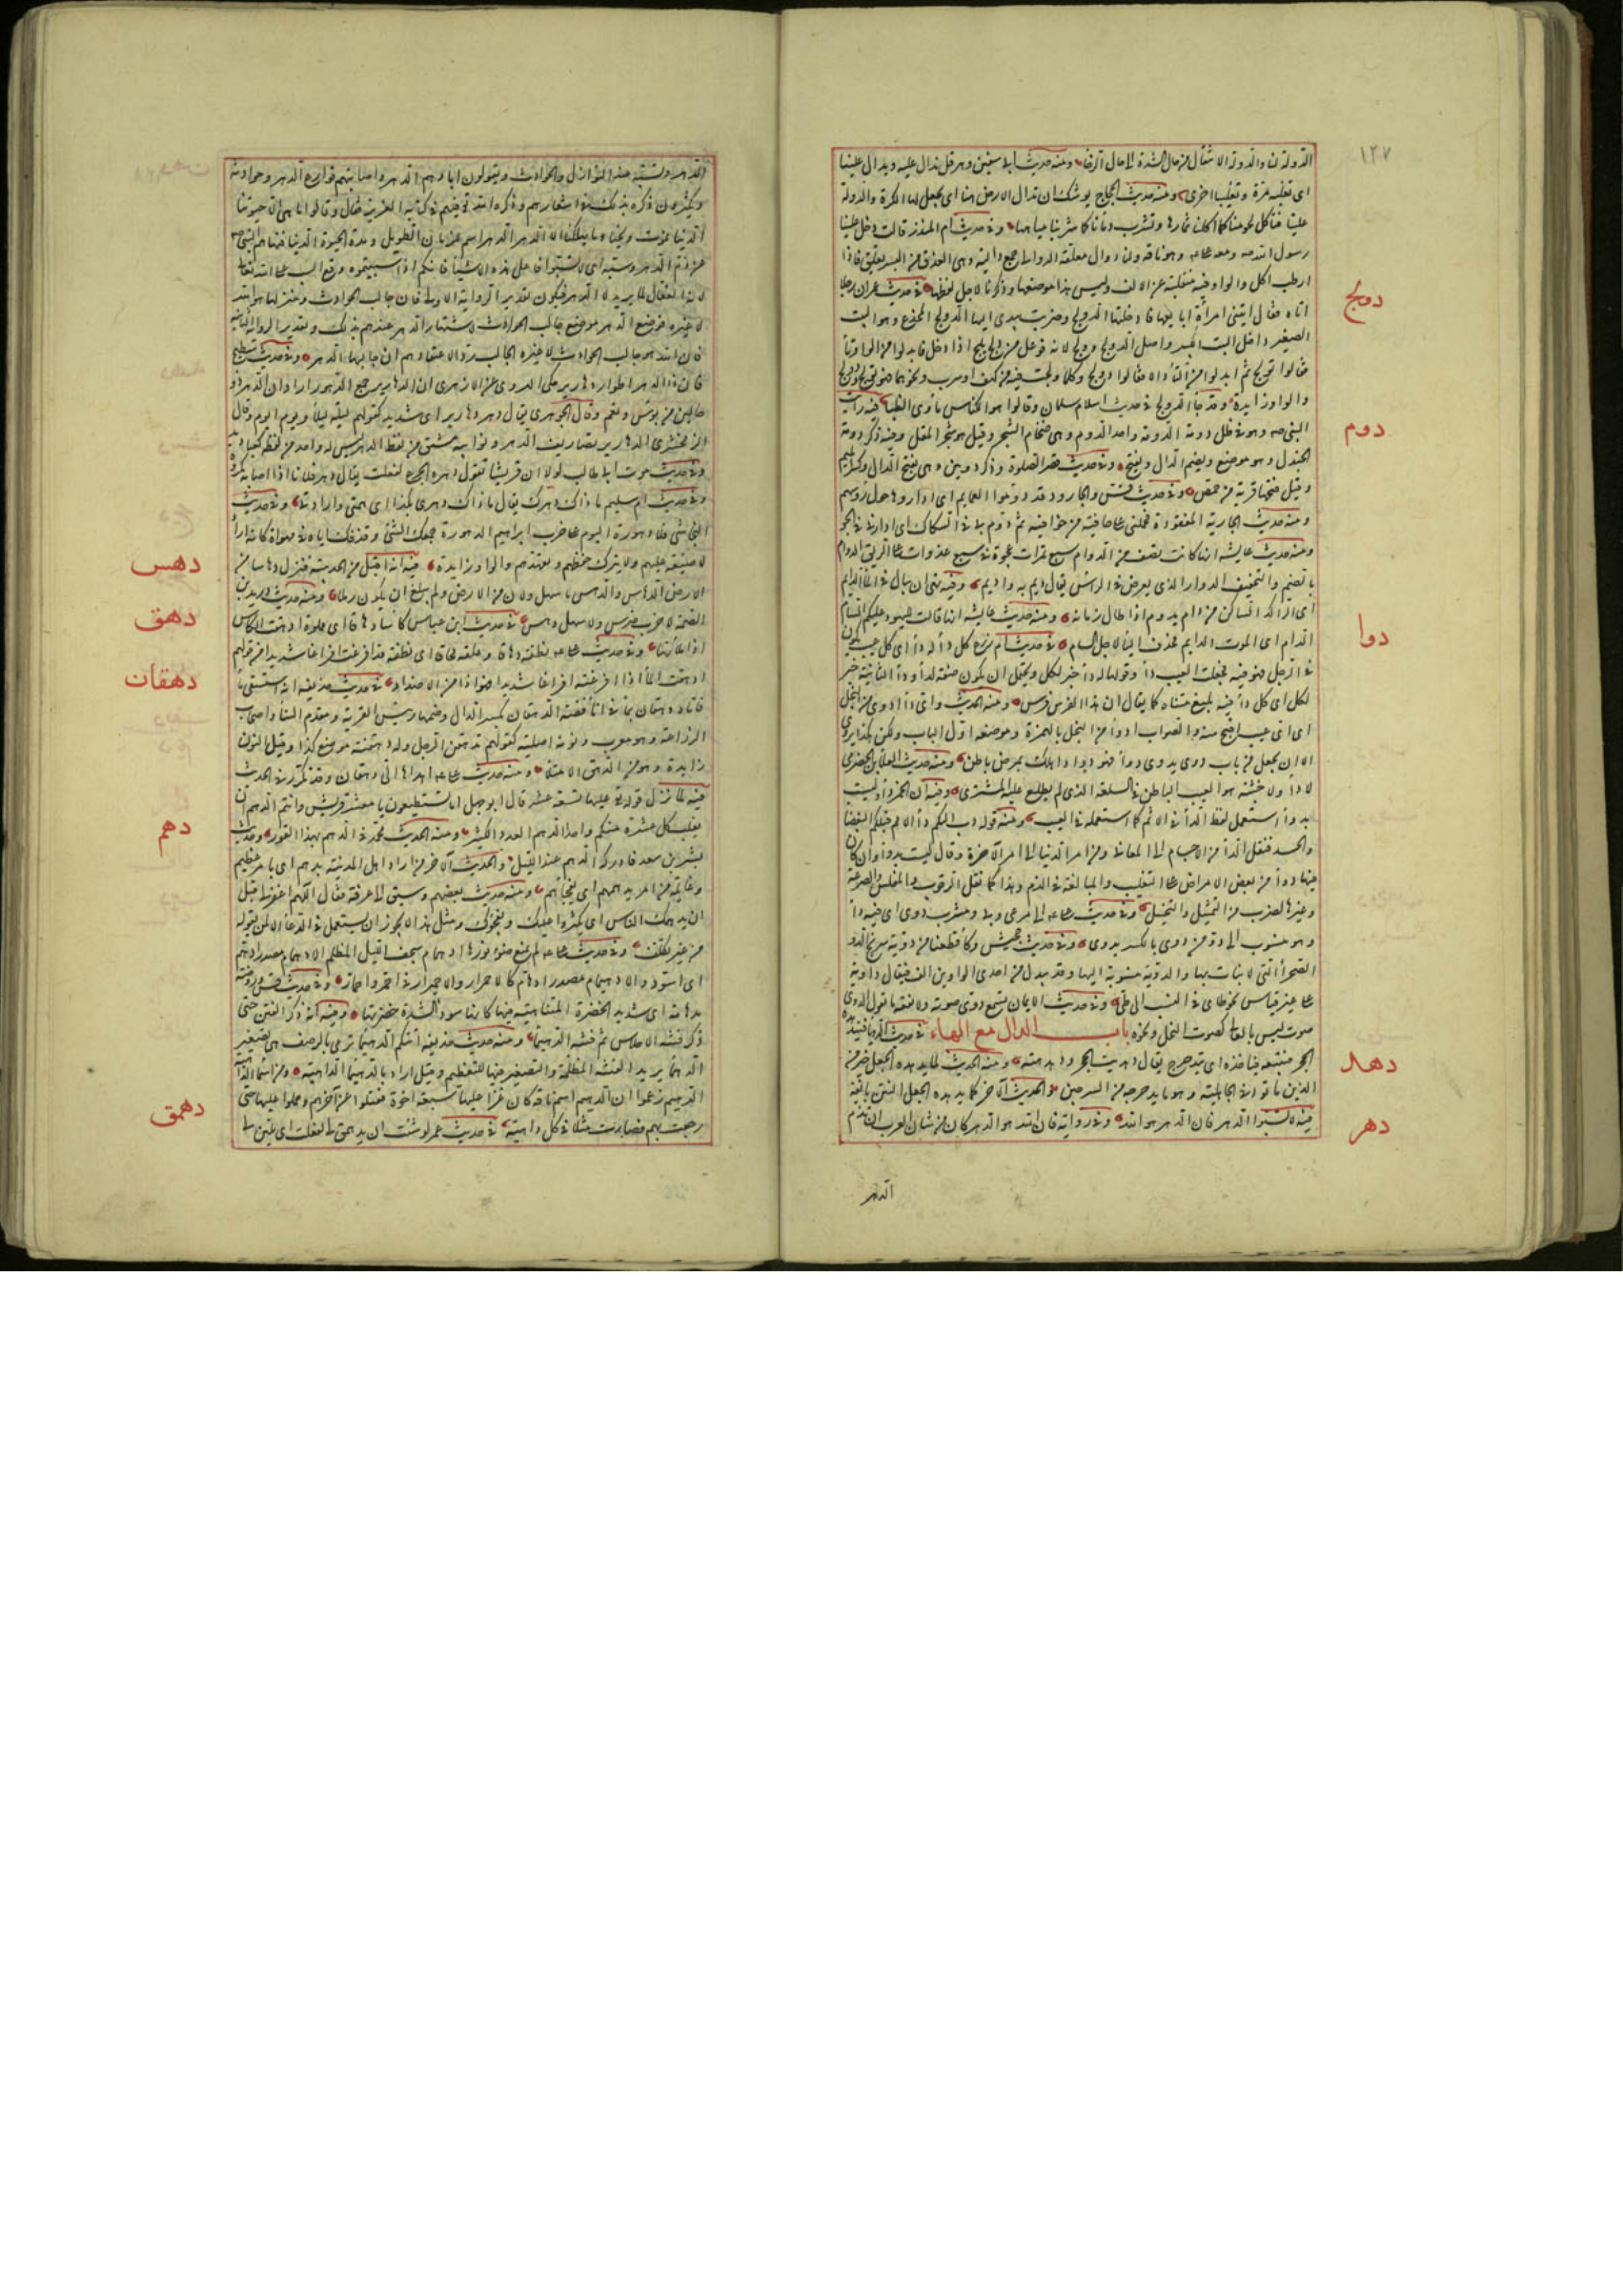 ١٢٧
الدولة ن والدولة الانتقال من حال الشدة الى حال الرخاء ومنه حديث ابي سفين وهرقل ندال عليه ويدال علينا
اى نغلبه مرة ويغلبنا اخرى ومنه حديث الحجاج يوشك ان تدال الارض منا اى يجعل لها الكرة والدولة
علينا فتأكل لحومنا كما اكلنا ثمارها وتشرب دمآنا كما شربنا مياهها وفى حديث ام المنذر قالت دخل علينا
رسول الله صه ومعه على وهو ناقه ولنا دوال معلقة الدوالى جمع دالية وهى العذق من البسر يعلق فاذا
ارطب اكل والواو فيه منقلبة عن الالف وليس هذا موضعها وذكرنا لاجل لفظها فى حديث عمران رجلا
دولج
اتاه فقال اتتنى امرأة ابايعها فادخلتها الدولج وضربت بيدى اليها الدولج المخدع وهو البيت
الصغير داخل البيت الكبير واصل الدولج وولج لانه فوعل من ولج يلج اذا دخل فابدلوا من الواو تآء
فقالوا تولج ثم ابدلوا من التآء دالا فقالوا دولج وكلما ولجت فيه من كهف او سرب ونحوهما فهو تولج ودولج
والواو زايدة وقد جآء الدولج فى حديث اسلام سلمان وقالوا هو الكناس مأوى الظبآء فيه رأيت
دوم
النبى صه وهو فى ظل دومة الدومة واحد الدوم وهى ضخام الشجر وقيل هو شجر المقل وفيه ذكر دومة
الجندل وهو موضع ويضم الدال ويفتح وفى حديث قصر الصلوة وذكر دومين وهى بفتح الدال وكسر الميم
وقيل فتحها قرية من حمص وفى حديث قس والجارود قد دوموا العمايم اى اداروها حول رؤسهم
ومنه حديث الجارية المفقودة فحملنى على خافية من خوافيه ثم دوم بى فى السكاك اى ادارنى فى الجو
ومنه حديث عايشه انها كانت تصف من الدوام سبع تمرات عجوة فى سبع غدوات على الريق الدوام
بالضم والتخفيف الدوار الذى يعرض فى الرأس يقال ديم به واديم وفيه نهى ان يبال فى المآء الدايم
اى الراكد الساكن من دام يدوم اذا طال زمانه ومنه حديث عايشه انها قالت لليهود عليكم السام
دوا
الدام اى الموت الدايم فحذف اليآء لاجل السام فى حديث ام زرع كل دآء له دآء اى كل عيب يكون
فى الرجل فهو فيه فجعلت العيب دآء وقولها له دآء خبر لكل ويحتمل ان يكون صفة لدآء ودآء الثانية خبر
لكل اى كل دآء فيه بليغ متناه كما يقال ان هذا الفرس فرس ومنه الحديث واى دآء ادوى من البخل
اى اى عيب اقبح منه والصواب ادوأ من البخل بالهمزة وموضعه اول الباب ولكن هكذا يروى
الا ان يجعل من باب دوى يدوى دوآء فهو دوا اذا هلك بمرض باطن ومنه حديث العلآء بن الحضرمى
لا دآء ولا خبثة هو العيب الباطن فى السلعة الذى لم يطلع عليه المشترى وفيه ان الخمر دآء وليست
بدوآء استعمل لفظ الدآء فى الاثم كما استعمله فى العيب ومنه قوله دب اليكم دآء الامم قبلكم البغضآء
والحسد فنقل الدآء من الاجسام الى المعانى ومن امر الدنيا الى امر الآخرة وقال ليست بدوآء وان كان
فيها دوآء من بعض الامراض على التغليب والمبالغة فى الذم وهذا كما نقل الرقوب والمفلس والصرعة
وغيرها لضرب من التمثيل والتخييل وفى حديث على الى مرعى وبى ومشرب دوى اى فيه دآء
وهو منسوب الى دو من دوى بالكسر يدوى وفى حديث جهيش وكأى قطعنا من دوية سربخ الدو
الصحرآء التى لا نبات بها والدوية منسوبة اليها وقد يبدل من احدى الواوين الف فيقال داوية
على غير قياس نحو طائ فى النسب الى طى وفى حديث الايمان نسمع دوى صوته ولا نفقه ما يقول الدوى
صوت ليس بالعالى كصوت النحل ونحوه باب الدال مع الهاء فى حديث الرؤيا فيتدهده
دهده
الحجر فيتبعه فياخذه اى يتدحرج يقال دهديت الحجر ودهدهته ومنه الحديث لما يدهده الجعل خير من
الذين ماتوا فى الجاهلية وهو ما يدحرجه من السرجين والحديث الآخر كما يدهده الجعل النتن بانفه
دهر
فيه لا تسبوا الدهر فان الدهر هو الله وفى رواية فان الله هو الدهر كان من شان العرب ان تذم
الدهر
الدهر وتسبه عند النوازل والحوادث ويقولون ابادهم الدهر واصابتهم قوارع الدهر وحوادثه
ويكثرون ذكره بذلك فى اشعارهم وذكره الله عنهم فى كتابه العزيز فقال وقالوا ما هى الا حيوتنا
الدنيا نموت ونحيا وما يهلكنا الا الدهر الدهر اسم للزمان الطويل ومدة الحيوة الدنيا فنهاهم النبى صه
عن ذم الدهر وسبه اى لا تسبوا فاعل هذه الاشيآء فانكم اذا سببتموه وقع السب على الله تعالى
لانه الفعال لما يريد لا الدهر فيكون تقدير الرواية الاولى فان جالب الحوادث ومنزلها هو الله
لا غيره فوضع الدهر موضع جالب الحوادث لاشتهار الدهر عندهم بذلك وتقدير الرواية الثانية
فان الله هو جالب الحوادث لا غيره الجالب ردا لاعتقادهم ان جالبها الدهر وفى حديث سطيح
فان ذا الدهر اطوارا دهارير حكى الهروى عن الازهرى ان الدهارير جمع الدهور اراد ان الدهر ذو
حالين من بؤس ونعم وقال الجوهرى يقال دهر دهارير اى شديد كقولهم ليلة ليلآء ويوم ايوم وقال
الزمخشرى الدهارير تصاريف الدهر ونوايبه مشتق من لفظ الدهر ليس له واحد من لفظه كعباديد
وفى حديث موت ابى طالب لولا ان قريشا تقول دهره الجزع لفعلت يقال دهر فلانا امر اذا اصابه مكروه
وفى حديث ام سليم ما ذاك دهرك يقال ما ذاك دهرى وما دهرى بكذا اى همتى وارادتى وفى حديث
النجاشى فلا دهورة اليوم على حزب ابراهيم الدهورة جمعك الشئ وقذفك اياه فى مهواة كانه اراد
لا ضيعة عليهم ولا يترك حفظهم وتعهدهم والواو زايدة فيه انه اقبل من الحديبية فنزل دهاسا من
دهس
الارض الدهاس والدهس ما سهل ولان من الارض ولم يبلغ ان يكون رملا ومنه حديث دريد بن
الصمة لا حزن ضرس ولا سهل دهس فى حديث ابن عباس كأسا دهاقا اى مملوة ادهقت الكاس
دهق
اذا ملأتها وفى حديث على نطفة دهاقا وعلقة محاقا اى نطفة قد افرغت افراغا شديدا من قولهم
ادهقت المآء اذا افرغته افراغا شديدا فهو اذا من الاضداد فى حديث حذيفه انه استسقى مآء
دهقان
فاتاه دهقان بمآء فى انآء من فضة الدهقان بكسر الدال وضمها رئيس القرية ومقدم التنآء واصحاب
الزراعة وهو معرب ونونه اصلية كقولهم تدهقن الرجل وله دهقنة موضع كذا وقيل النون
زايدة وهو من الدهق الامتلآء ومنه حديث على اهداها الى دهقان وقد تكرر فى الحديث
فيه لما نزل قوله تع عليها تسعة عشر قال ابو جهل اما تستطيعون يا معشر قريش وانتم الدهم ان
دهم
يغلب كل عشرة منكم واحدا الدهم العدد الكثير ومنه الحديث محمد فى الدهم بهذا القوز وحديث
بشير بن سعد فادركه الدهم عند الليل والحديث الآخر من اراد اهل المدينة بدهم اى بامر عظيم
وغايلة من امر يدهمهم اى يفجأهم ومنه حديث بعضهم وسبق الى عرفة فقال اللهم اغفر لى قبل
ان يدهمك الناس اى يكثروا عليك ويفجؤك ومثل هذا لا يجوز ان يستعمل فى الدعآء الا لمن يقوله
من غير تكلف وفى حديث على لم يمنع ضوء نورها ادهمام سجف الليل المظلم الادهمام مصدر ادهم
اى اسود والادهيمام مصدر ادهام كالاحمرار والاحميرار فى احمر واحمار وفى حديث قس وروضة
مدهامة اى شديد الخضرة المتناهية فيها كانها سودآء لشدة خضرتها وفيه انه ذكر الفتن حتى
ذكر فتنة الاحلاس ثم فتنة الدهيمآء ومنه حديث حذيفه اتتكم الدهيمآء ترمى بالرضف هى تصغير
الدهمآء يريد الفتنة المظلمة والتصغير فيها للتعظيم وقيل اراد بالدهيمآء الداهية ومن اسمآئها
الدهيم زعموا ان الدهيم اسم ناقة كان غزا عليها سبعة اخوة فقتلوا عن آخرهم وحملوا عليها حتى
رجعت بهم فصارت مثلا فى كل داهية فى حديث عمر لو شئت ان يدهمق لى لفعلت اى يلين لى
دهمق